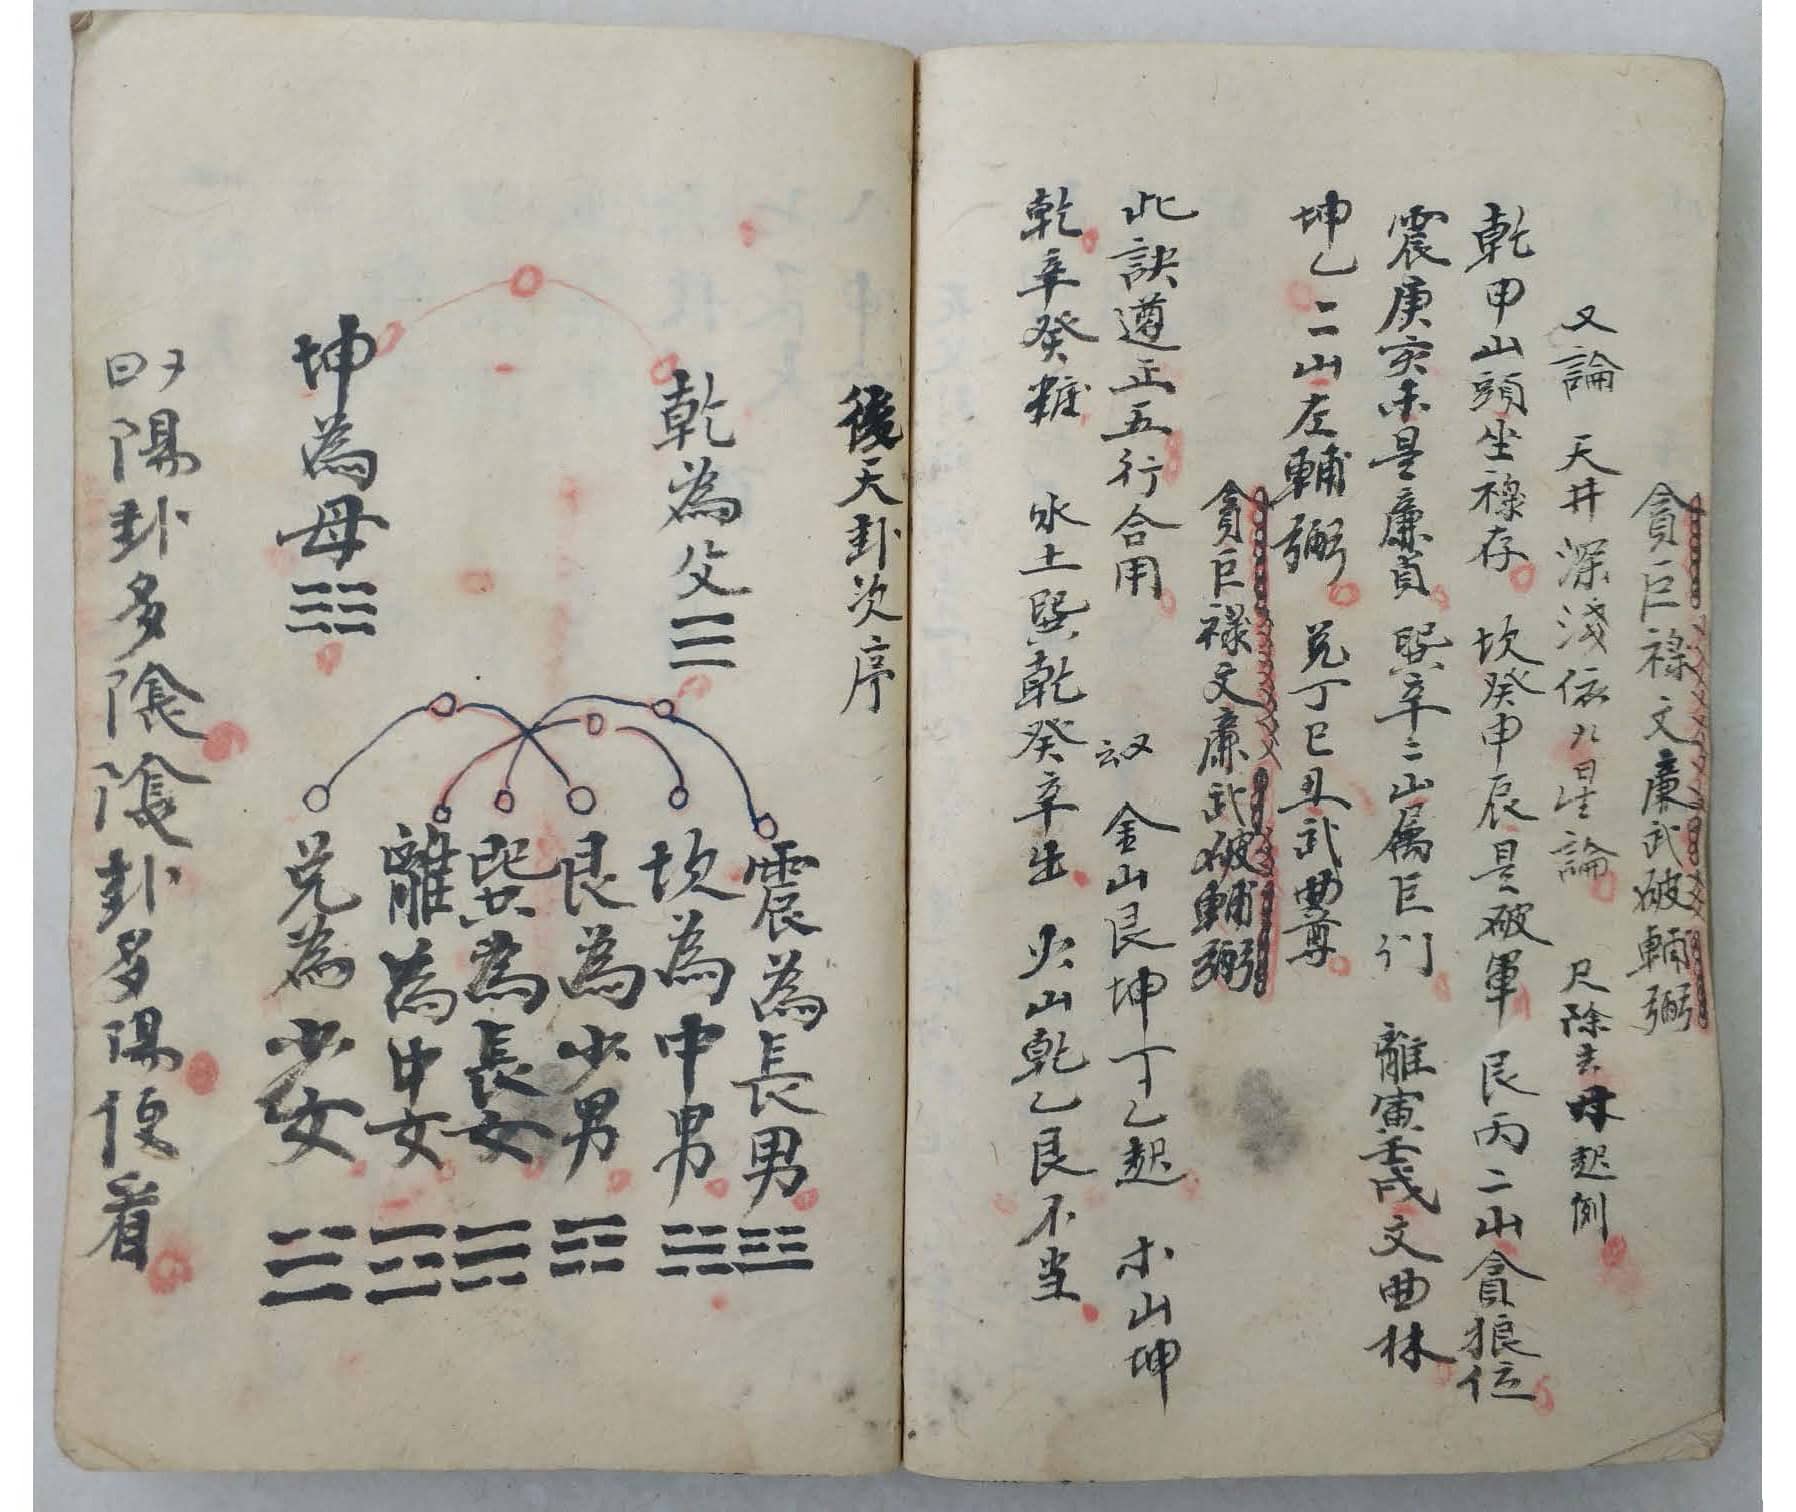 貪巨祿文廉武破輔弼
又論 天井深淺依九星論 尺除去 起例
乾甲山頭坐祿存 坎癸申辰是破軍 艮丙二山貪狼位
震庚亥未是廉貞 巽辛二山屬巨门 離寅壬戌文曲林
坤乙二山左輔弼 兌丁巳丑武曲尊
貪巨祿文廉武破輔弼
此訣遵正五行合用 金山艮坤丁乙起 木山坤
乾辛癸 水土巽乾癸辛出 火山乾乙艮不当
後天卦次序
乾為父☰
坤為母☷
震為長男☳
坎為中男☵
艮為少男☶
巽為長女☴
離為中女☲
兌為少女☱
以陽卦多陰陰卦多陽便看